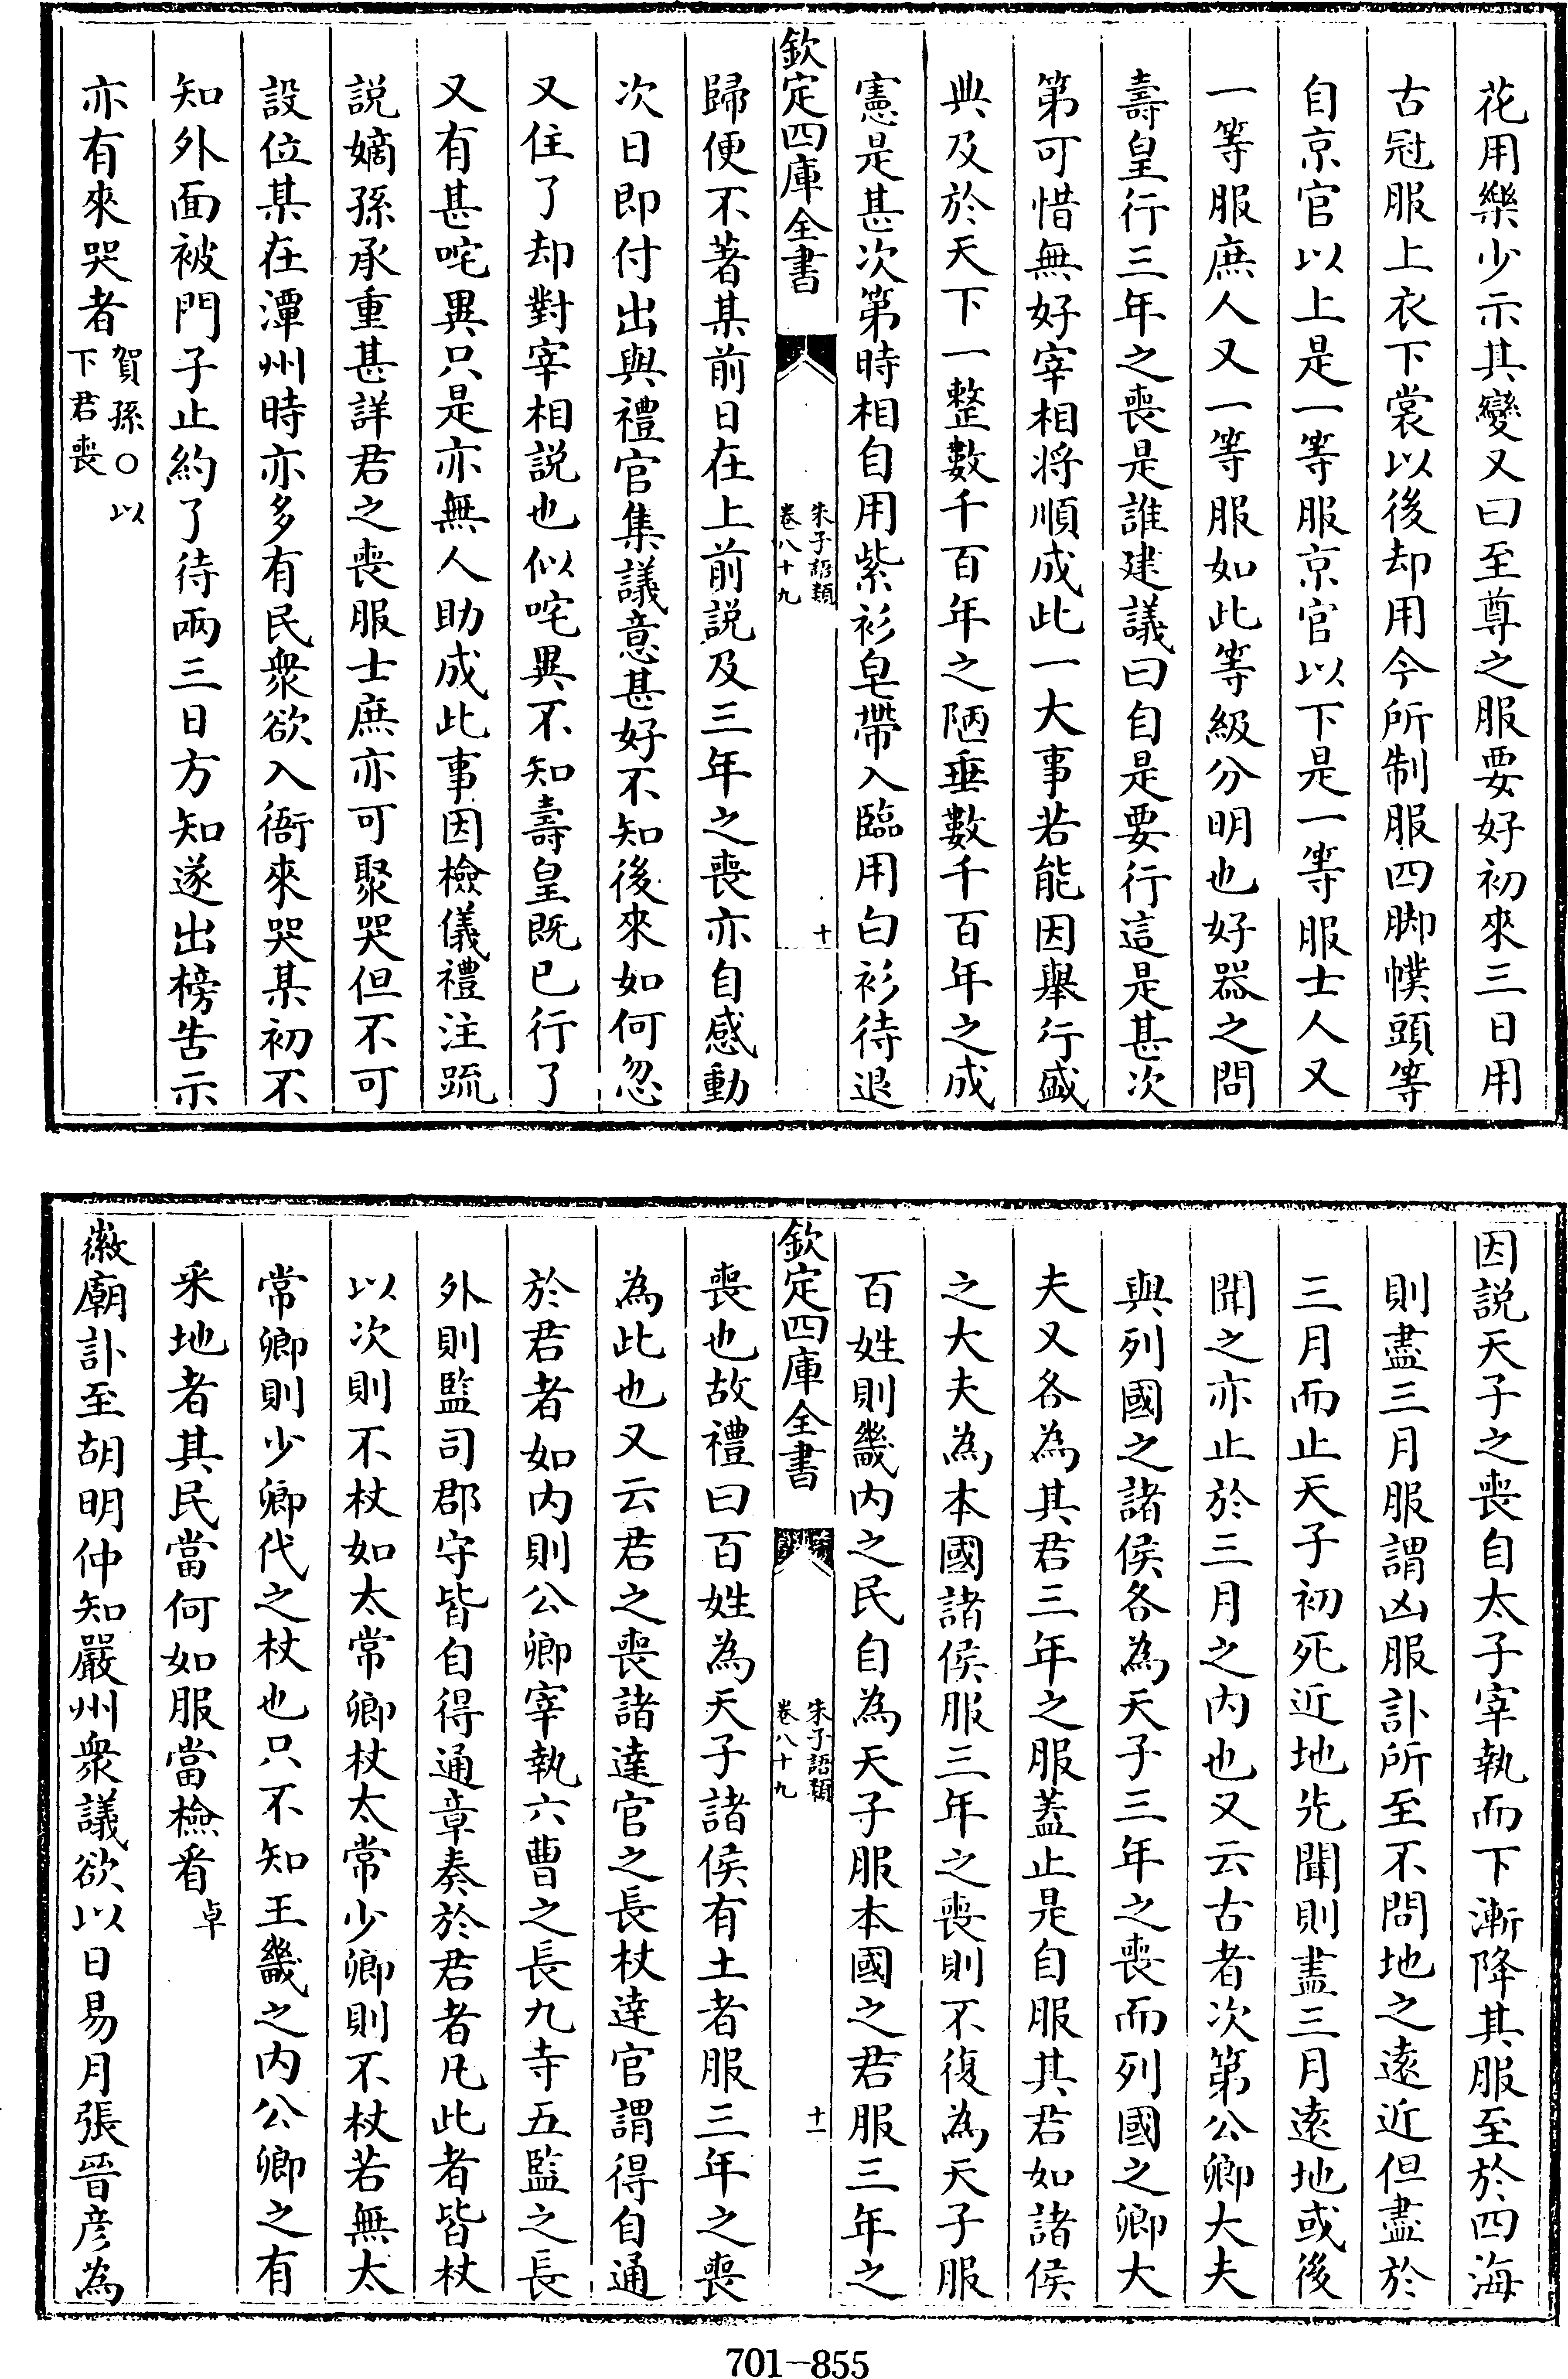 花用樂少示其變又曰至尊之服要好初來三日用
古冠服上衣下裳以後却用今所制服四脚幞頭等
自京官以上是一等服京官以下是一等服士人又
一等服庶人又一等服如此等級分明也好器之問
壽皇行三年之喪是誰建議曰自是要行這是甚次
第可惜無好宰相将順成此一大事若能因舉行盛
典及於天下一整數千百年之陋垂數千百年之成
憲是甚次第時相自用紫衫皂帶入臨用白衫待退
欽定四庫全書
朱子語類
卷八十九
十
歸便不著某前日在上前説及三年之喪亦自感動
次日即付出與禮官集議意甚好不知後來如何忽
又住了却對宰相説也似咤異不知壽皇既已行了
又有甚咤異只是亦無人助成此事因檢儀禮注疏
説嫡孫承重甚詳君之喪服士庶亦可聚哭但不可
設位某在潭州時亦多有民衆欲入衙來哭某初不
知外面被門子止約了待兩三日方知遂出榜告示
亦有來哭者賀孫〇以
下君喪
因説天子之喪自太子宰執而下漸降其服至於四海
則盡三月服謂凶服訃所至不問地之遠近但盡於
三月而止天子初死近地先聞則盡三月遠地或後
聞之亦止於三月之内也又云古者次第公卿大夫
與列國之諸侯各為天子三年之喪而列國之卿大
夫又各為其君三年之服蓋止是自服其君如諸侯
之大夫為本國諸侯服三年之喪則不復為天子服
百姓則畿内之民自為天子服本國之君服三年之
欽定四庫全書
朱子語類
卷八十九
十一
喪也故禮曰百姓為天子諸侯有土者服三年之喪
為此也又云君之喪諸達官之長杖達官謂得自通
於君者如内則公卿宰執六曹之長九寺五監之長
外則監司郡守皆自得通章奏於君者凡此者皆杖
以次則不杖如太常卿杖太常少卿則不杖若無太
常卿則少卿代之杖也只不知王畿之内公卿之有
采地者其民當何如服當檢看卓
徽廟訃至胡明仲知嚴州衆議欲以日易月張晉彦為
701-855